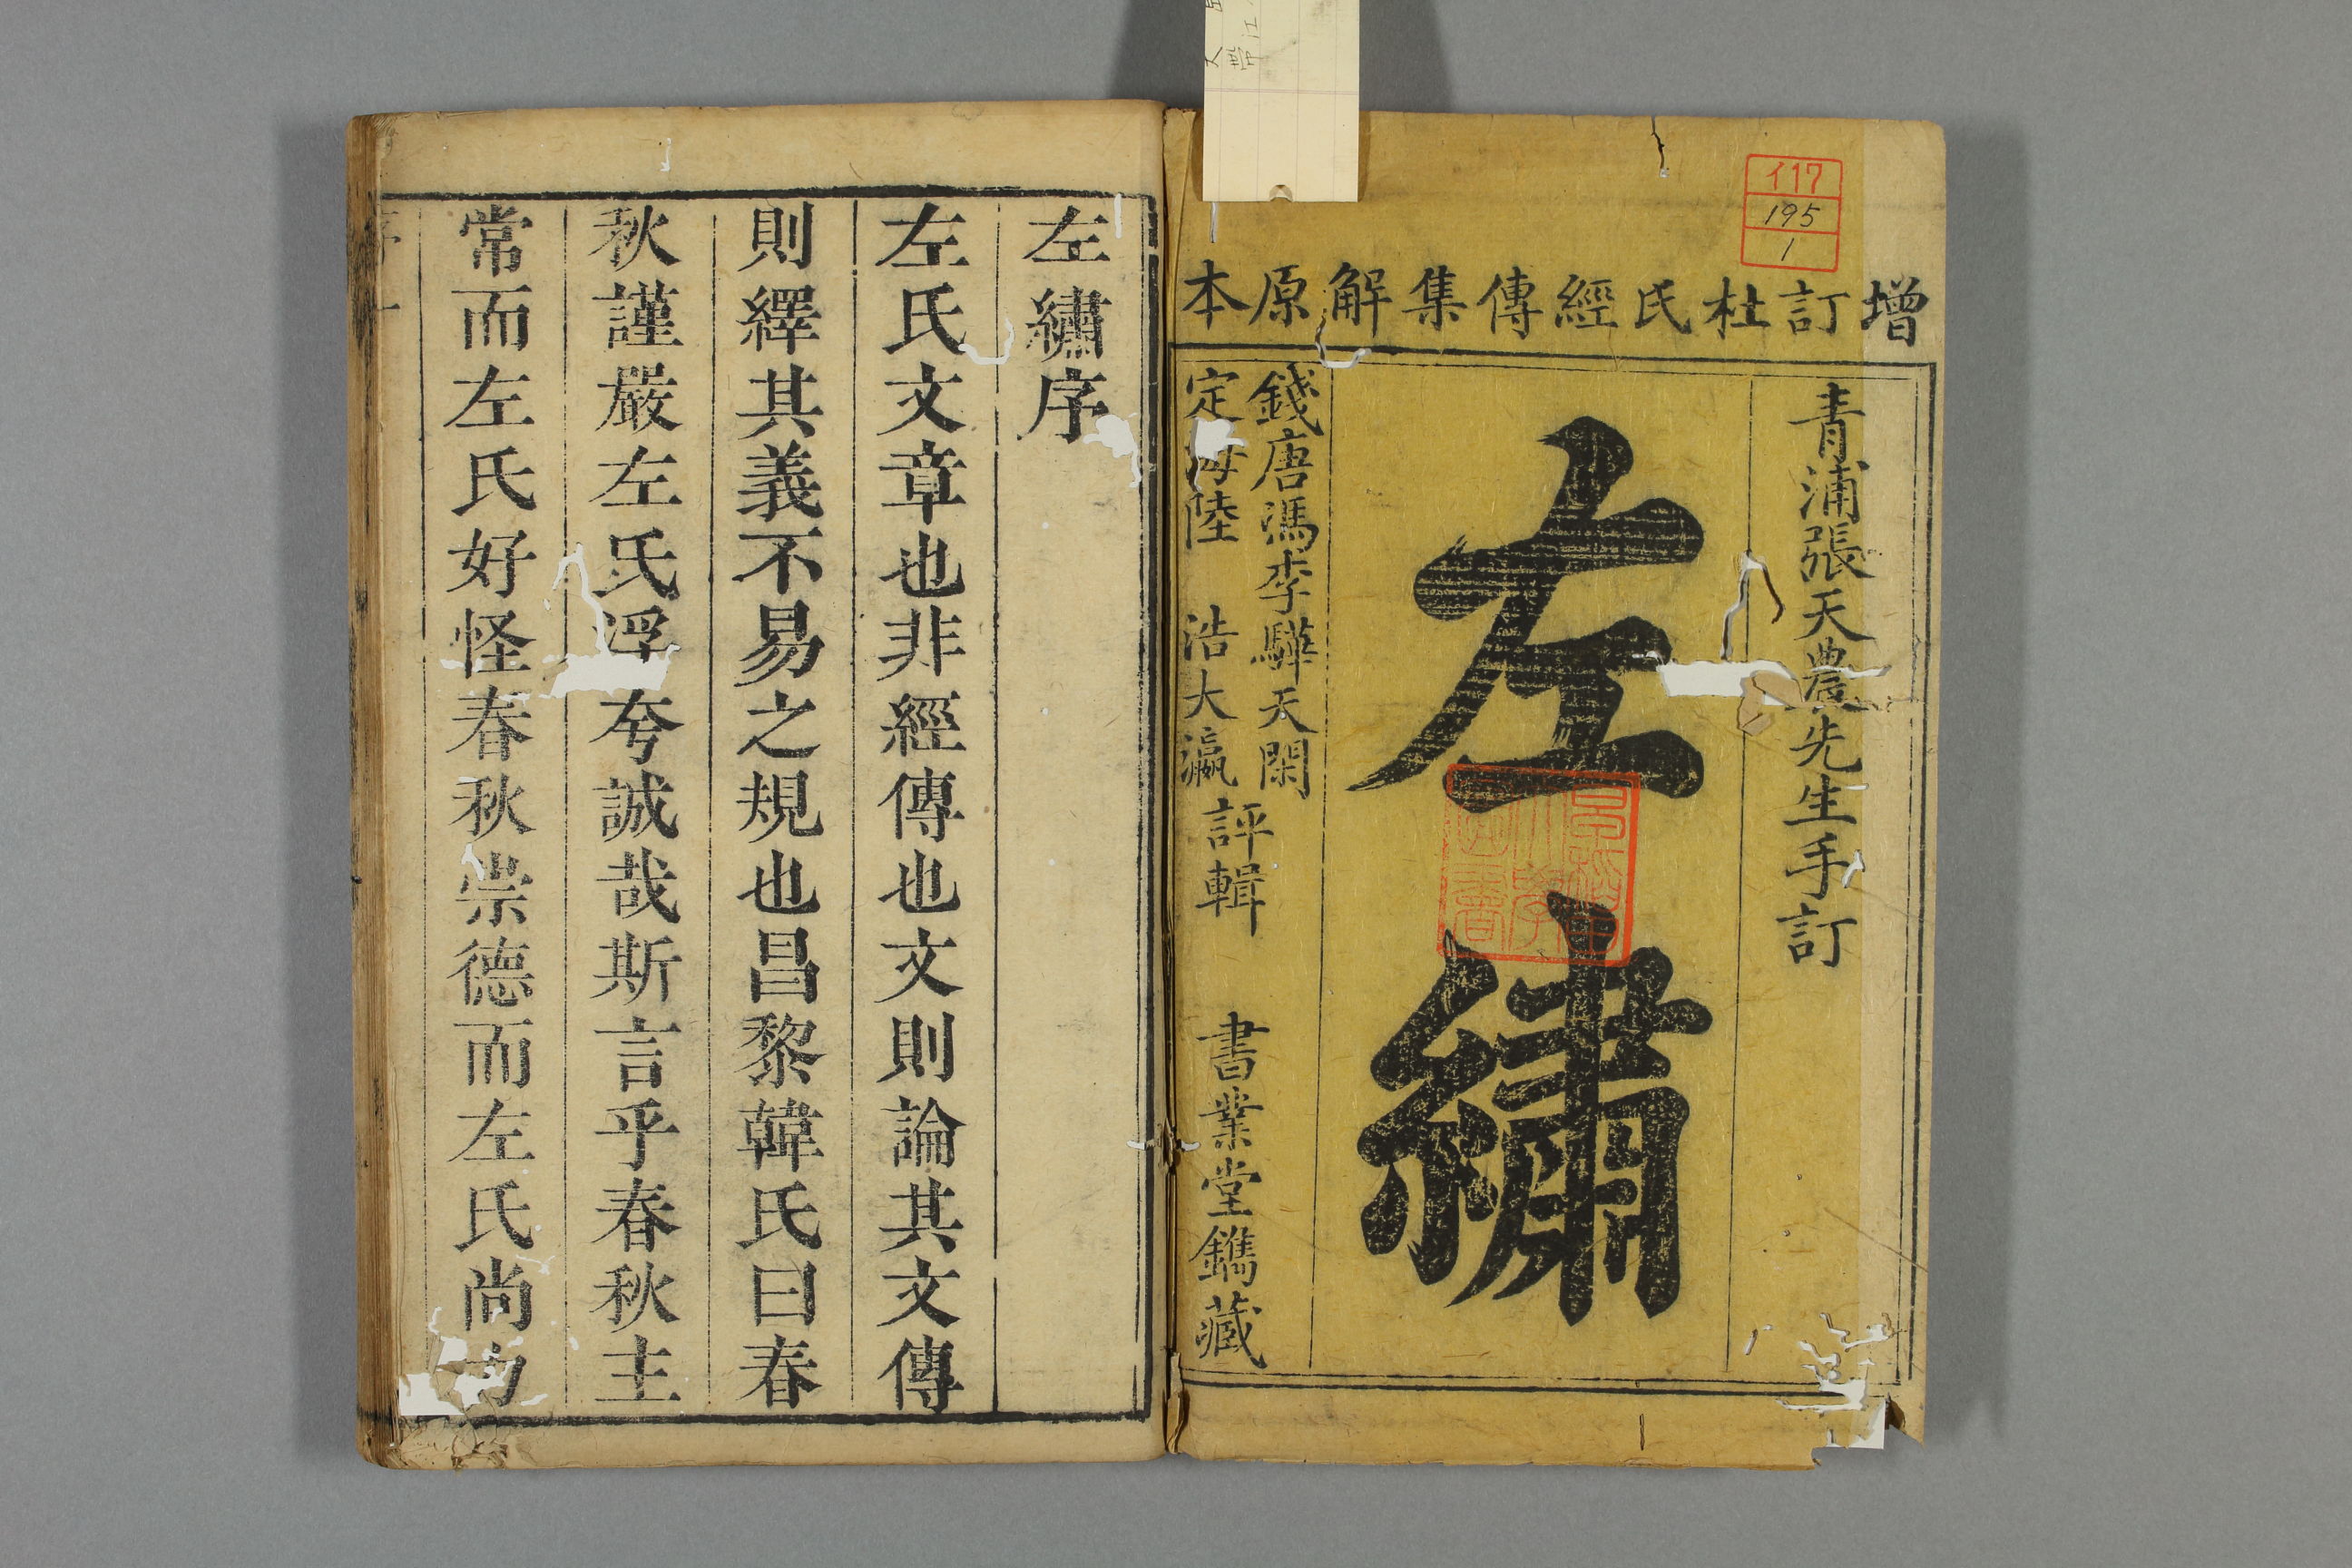 イ17
195
1
增訂杜氏經傳集解原本
青浦張天農先生手訂
左繡
錢唐馮李驊天閑
定海陸 浩大瀛
評輯
書業堂鐫藏
左繡序
左氏文章也非經傳也文則論其文傳
則繹其義不易之規也昌黎韓氏曰春
秋謹嚴左氏浮夸誠哉斯言乎春秋主
常而左氏好怪春秋崇德而左氏尚力